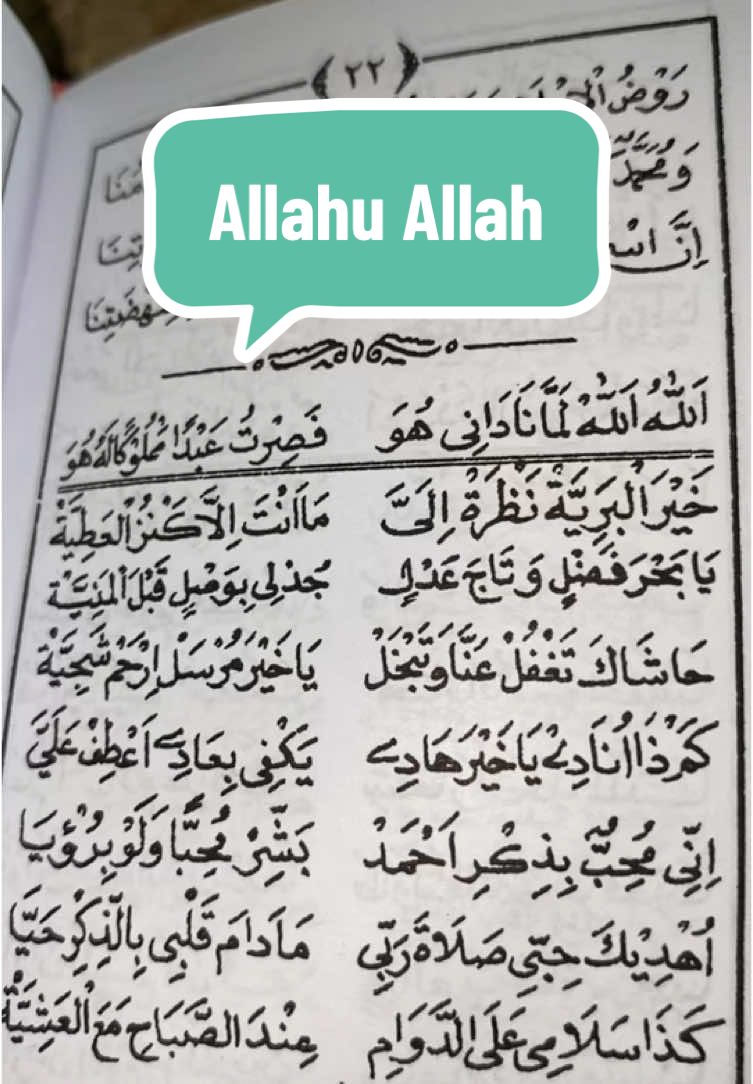 ٢٢
رَوْضُ
وَمُحَمَّدٌ
اِنَّ
Allahu Allah
اَللّٰهُ اَللّٰهْ لَمَّا نَادَانِى هُوَ فَصِرْتُ عَبْدًا مَمْلُوْكًا لَهُ هُوَ
خَيْرَ الْبَرِيَّةْ نَظْرَةْ اِلَىَّ مَا اَنْتَ اِلَّا كَنْزُ الْعَطِيَّةْ
يَا بَحْرَ فَضْلٍ وَتَاجَ عَدْلٍ جُدْلِى بِوَصْلٍ قَبْلَ الْمَنِيَّةْ
حَاشَاكَ تَغْفُلْ عَنَّا وَتَبْخَلْ يَا خَيْرَ مُرْسَلْ اِرْحَمْ شَجِيَّةْ
كَمْ ذَا اُنَادِيْ يَا خَيْرَ هَادِيْ يَكْفِى بِعَادِيْ اَعْطِفْ عَلَيَّ
اِنِّى مُحِبٌّ بِذِكْرِ اَحْمَدْ بَشِّرْ مُحِبًّا وَلَوْ بِرُؤْيَا
اُهْدِيْكَ حِبِّى صَلَاةَ رَبِّى مَادَامَ قَلْبِى بِالذِّكْرِ حَيًّا
كَذَا سَلَامِى عَلَى الدَّوَامِ عِنْدَ الصَّبَاحِ مَعَ الْعَشِيَّةْ